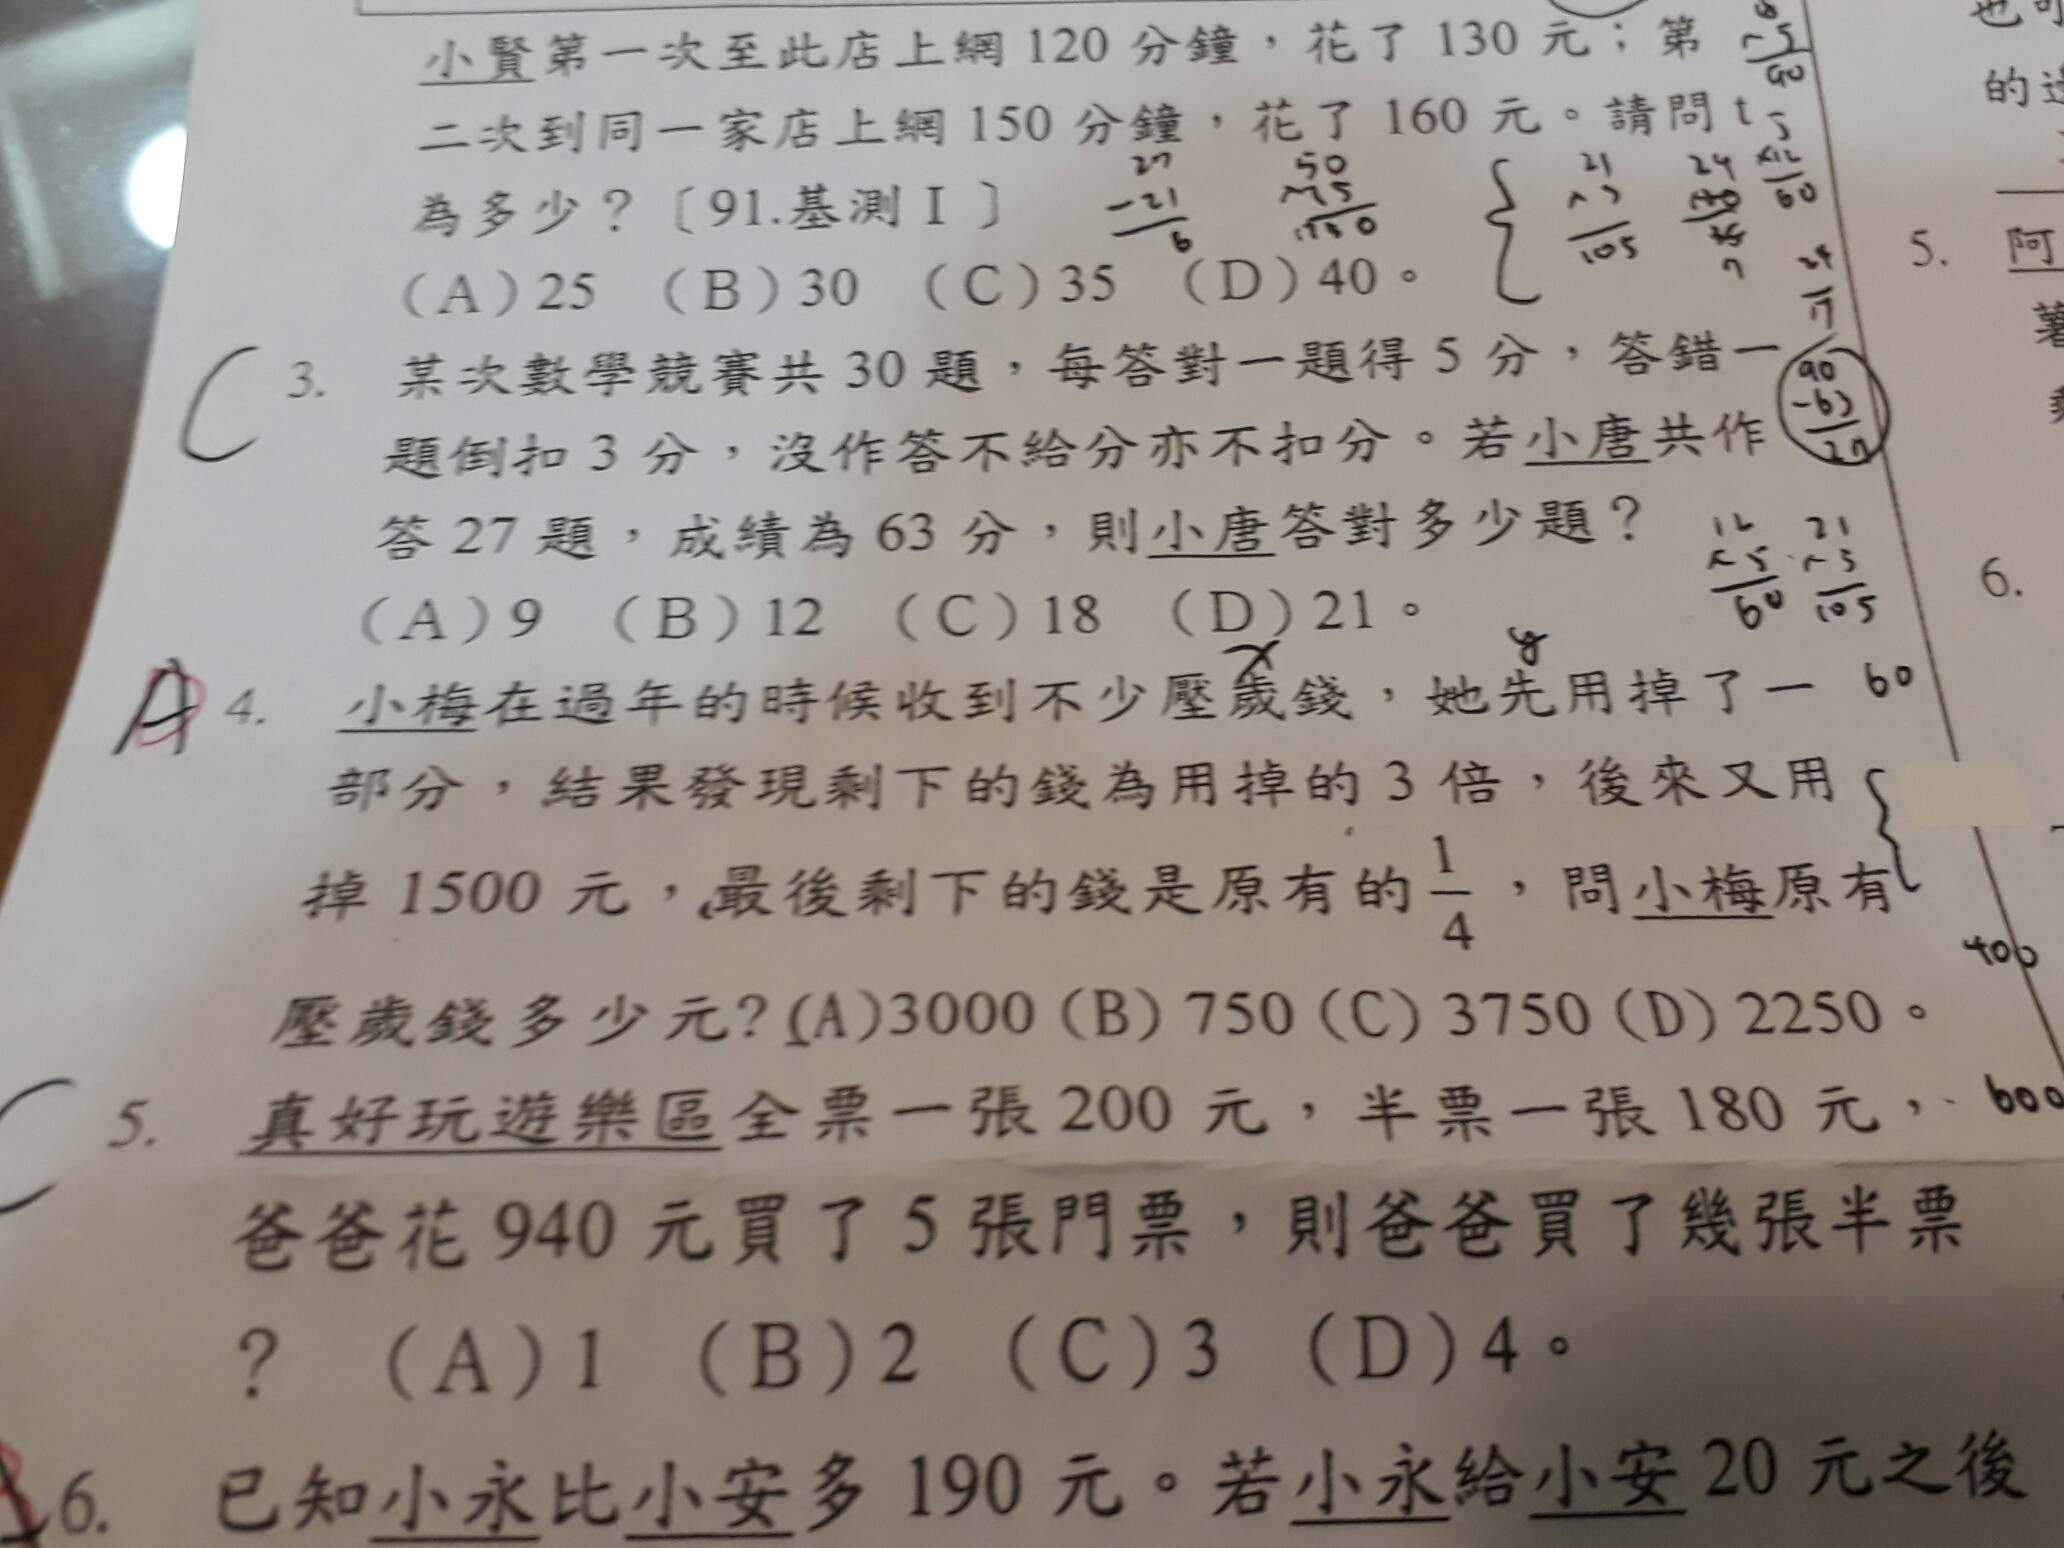 小賢第一次至此店上網 120 分鐘，花了 130 元；第
二次到同一家店上網 150 分鐘，花了 160 元。請問 t
為多少？〔91.基測Ⅰ〕
(A)25 (B)30 (C)35 (D)40。
27
-21
6
50
1750
21
105
24
60
90
C 3. 某次數學競賽共 30 題，每答對一題得 5 分，答錯一
題倒扣 3 分，沒作答不給分亦不扣分。若小唐共作
答 27 題，成績為 63 分，則小唐答對多少題？
(A)9 (B)12 (C)18 (D)21。
90
-63
27
12
×5
60
21
105
x
y
A 4. 小梅在過年的時候收到不少壓歲錢，她先用掉了一
60
部分，結果發現剩下的錢為用掉的 3 倍，後來又用
掉 1500 元，最後剩下的錢是原有的 1/4，問小梅原有
400
壓歲錢多少元?(A)3000 (B) 750 (C) 3750 (D) 2250。
C 5. 真好玩遊樂區全票一張 200 元，半票一張 180 元，
600
爸爸花 940 元買了 5 張門票，則爸爸買了幾張半票
？ (A)1 (B)2 (C)3 (D)4。
6. 已知小永比小安多 190 元。若小永給小安 20 元之後
的
5. 阿
6.